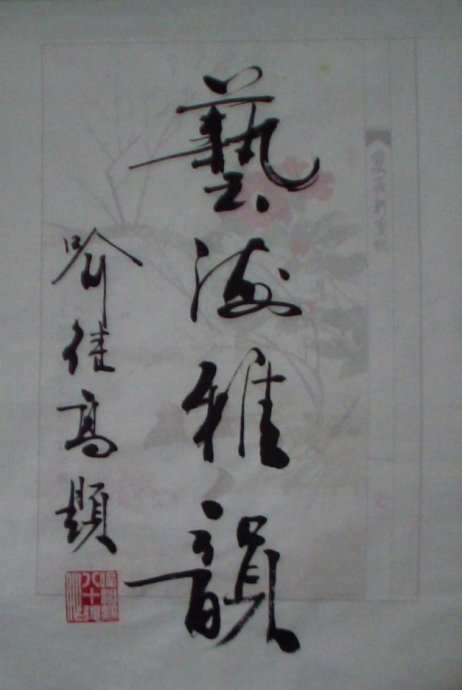 藝海雅韻
喻佳高題